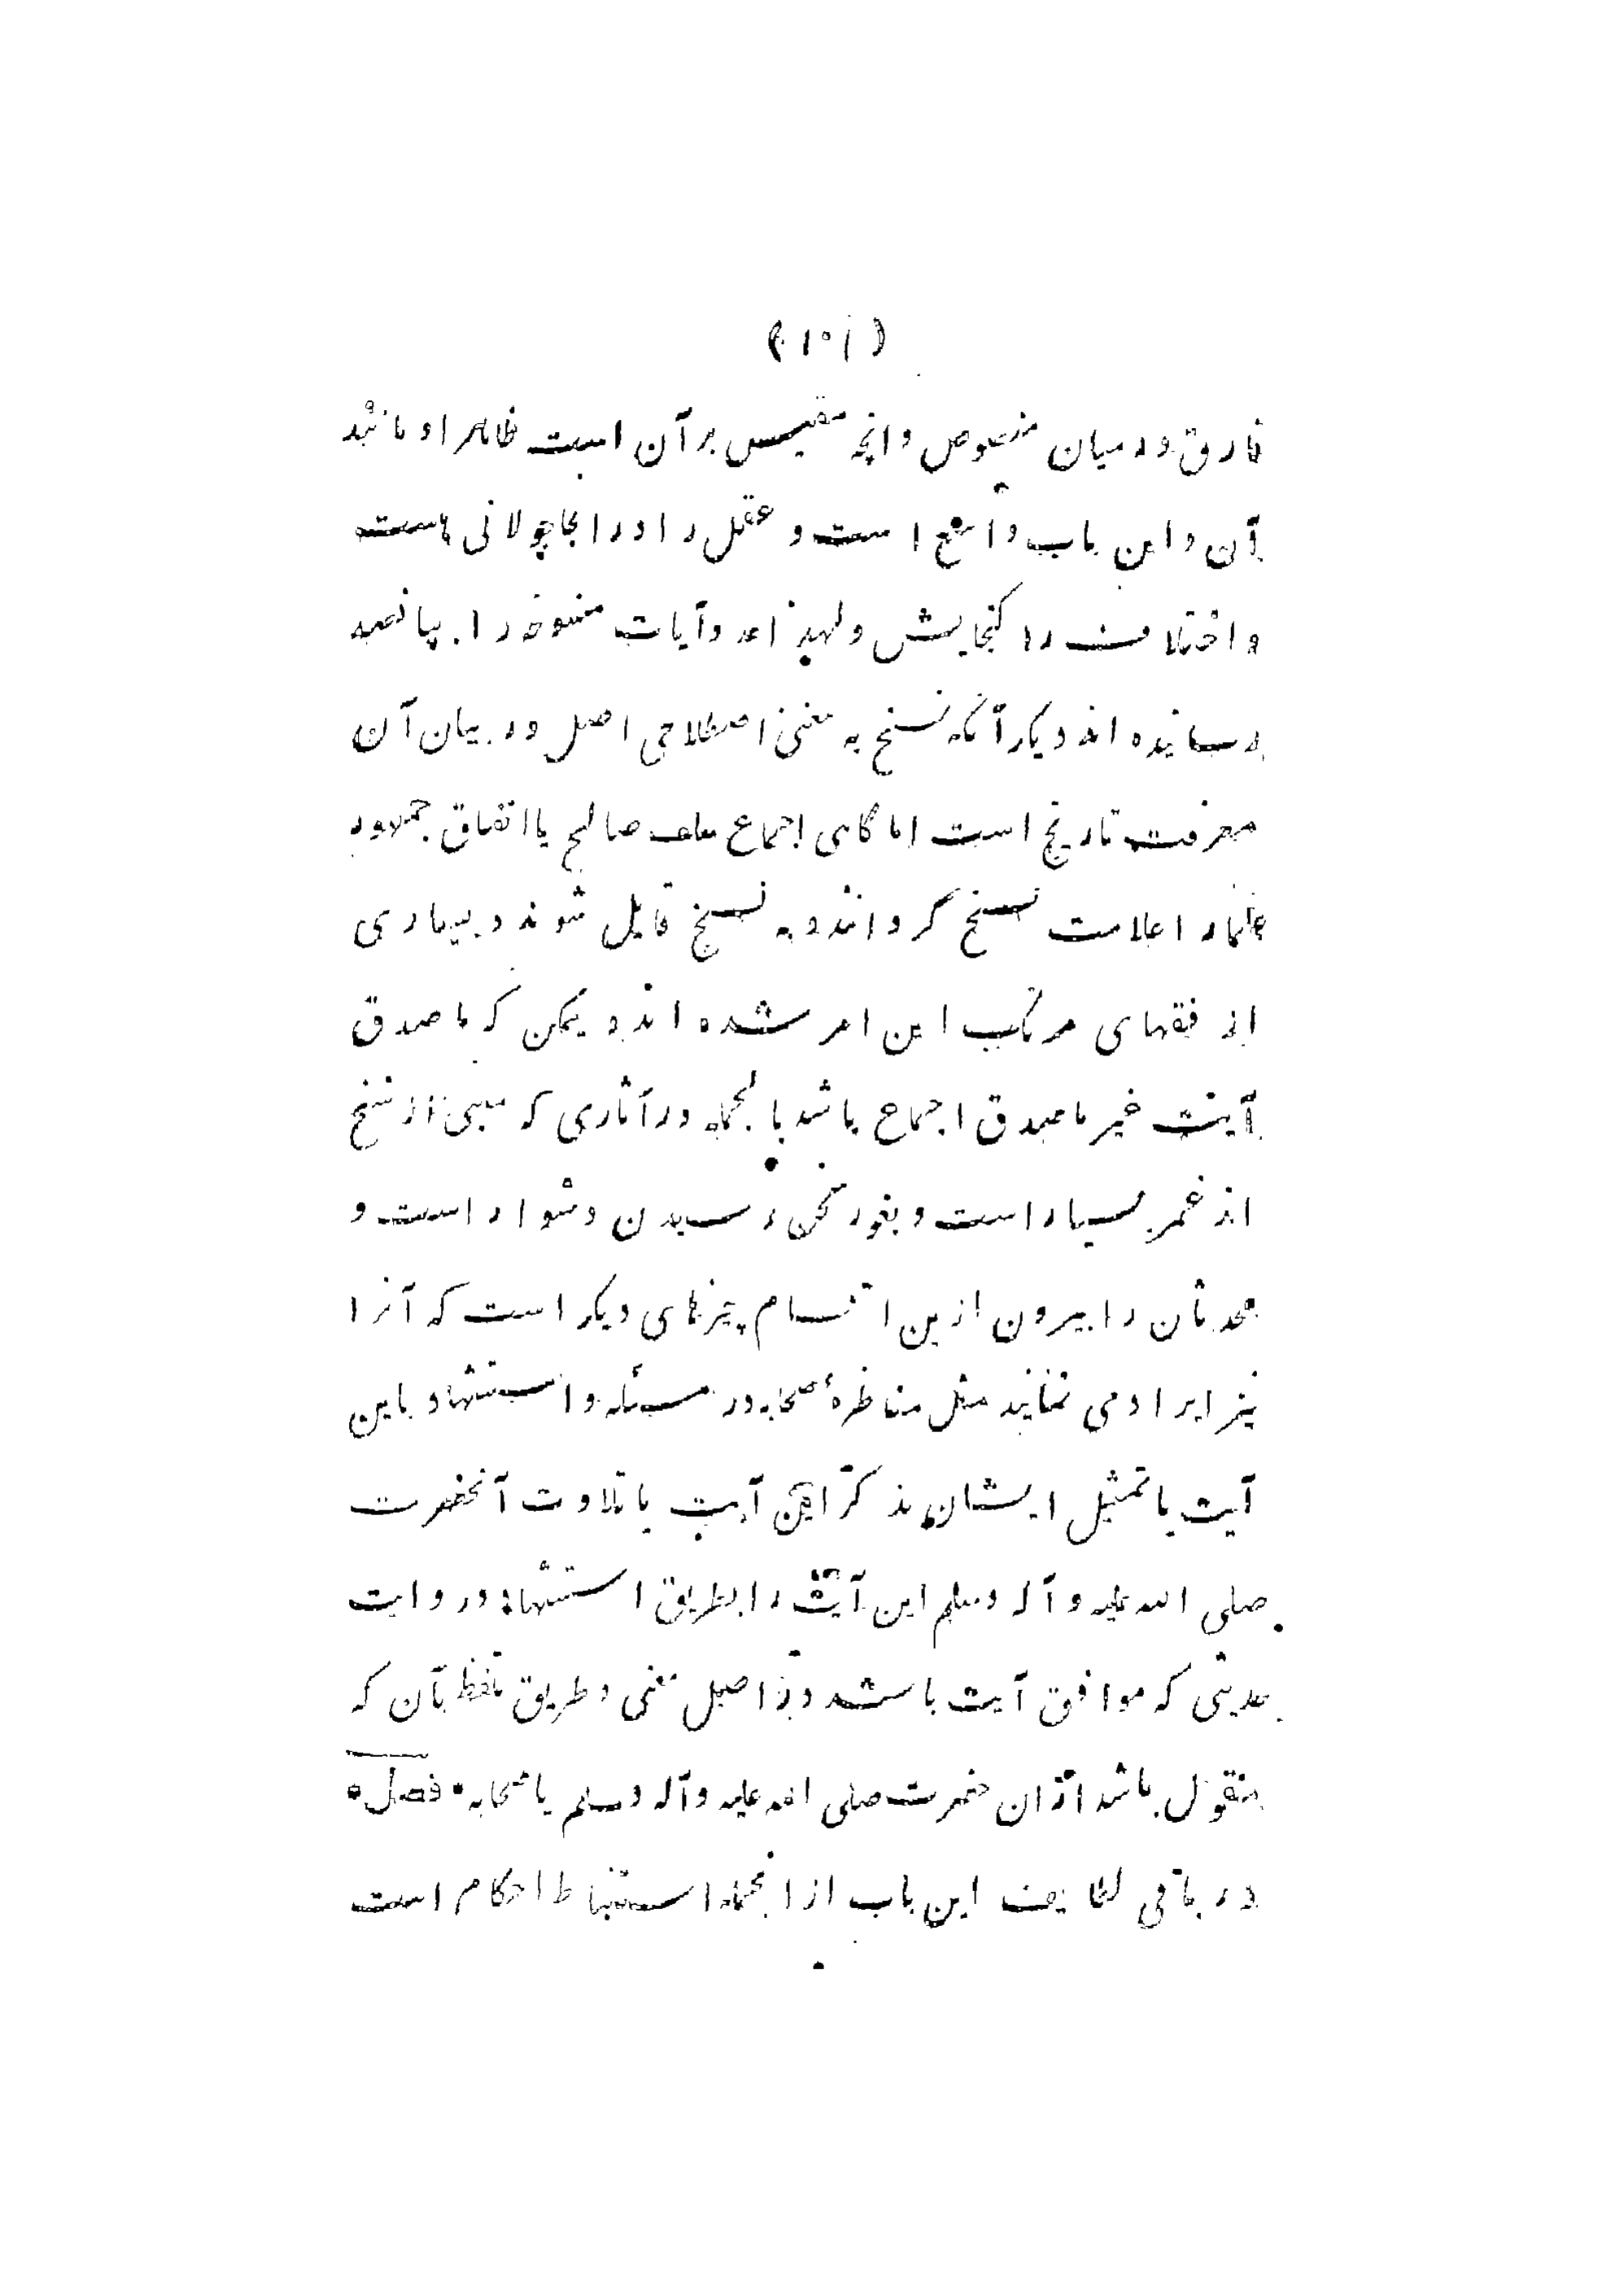 (۱۰۱)
فارق در میان منصوص و انچه مقیس بر آن است ظاهرا و مانند
آن و این باب واسع است و عقل را در انجا جولانی هست
و اختلاف را گنجایش و لهذا عدد آیات منسوخه را بپانصد
رسانیده اند دیگر آنکه نسخ به معنی اصطلاحی اصل در بیان آن
معرفت تاریخ است اما گاهی اجماع سلف صالح یا اتفاق جمهور
علما را علامت نسخ گردانند و به نسخ قایل شوند و بسیاری
از فقهای مرتکب این امر شده اند و یمکن که ما صدق
آیت غیر ما صدق اجماع باشد بالجمله در آثاری که مبنی از نسخ
اند غمر بسیار است و بغور سخن رسیدن دشوار است و
محدثان را بیرون ازین اقسام چیزهای دیگر است که آنرا
نیز ایراد می نمایند مثل مناظرهٔ صحابه در مسئله و استشهاد باین
آیت یا تمثیل ایشان بذکر این آیت یا تلاوت آنحضرت
صلی الله علیه و آله وسلم این آیت را بطریق استشهاد در روایت
حدیثی که موافق آیت باشد در اصل معنی و طریق تلفظ بآن که
منقول باشد ازان حضرت صلی الله علیه وآله وسلم یا صحابه • فصل •
در باقی لطایف این باب از انجمله استنباط احکام است